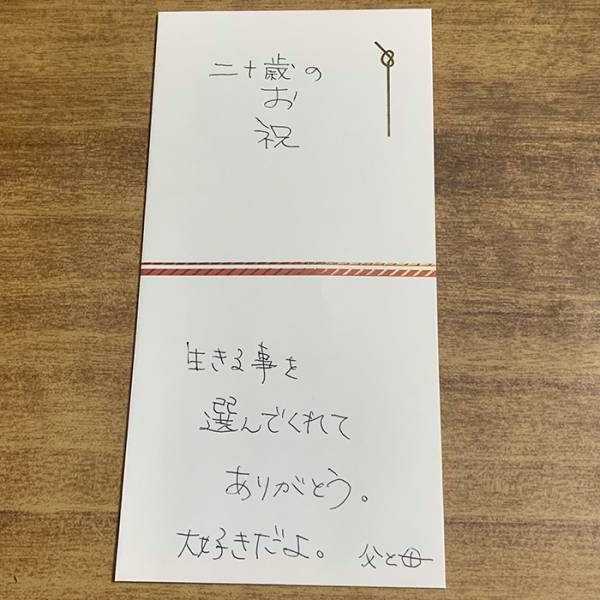 二十歳の
お
祝
生きる事を
選んでくれて
ありがとう。
大好きだよ。 父と母